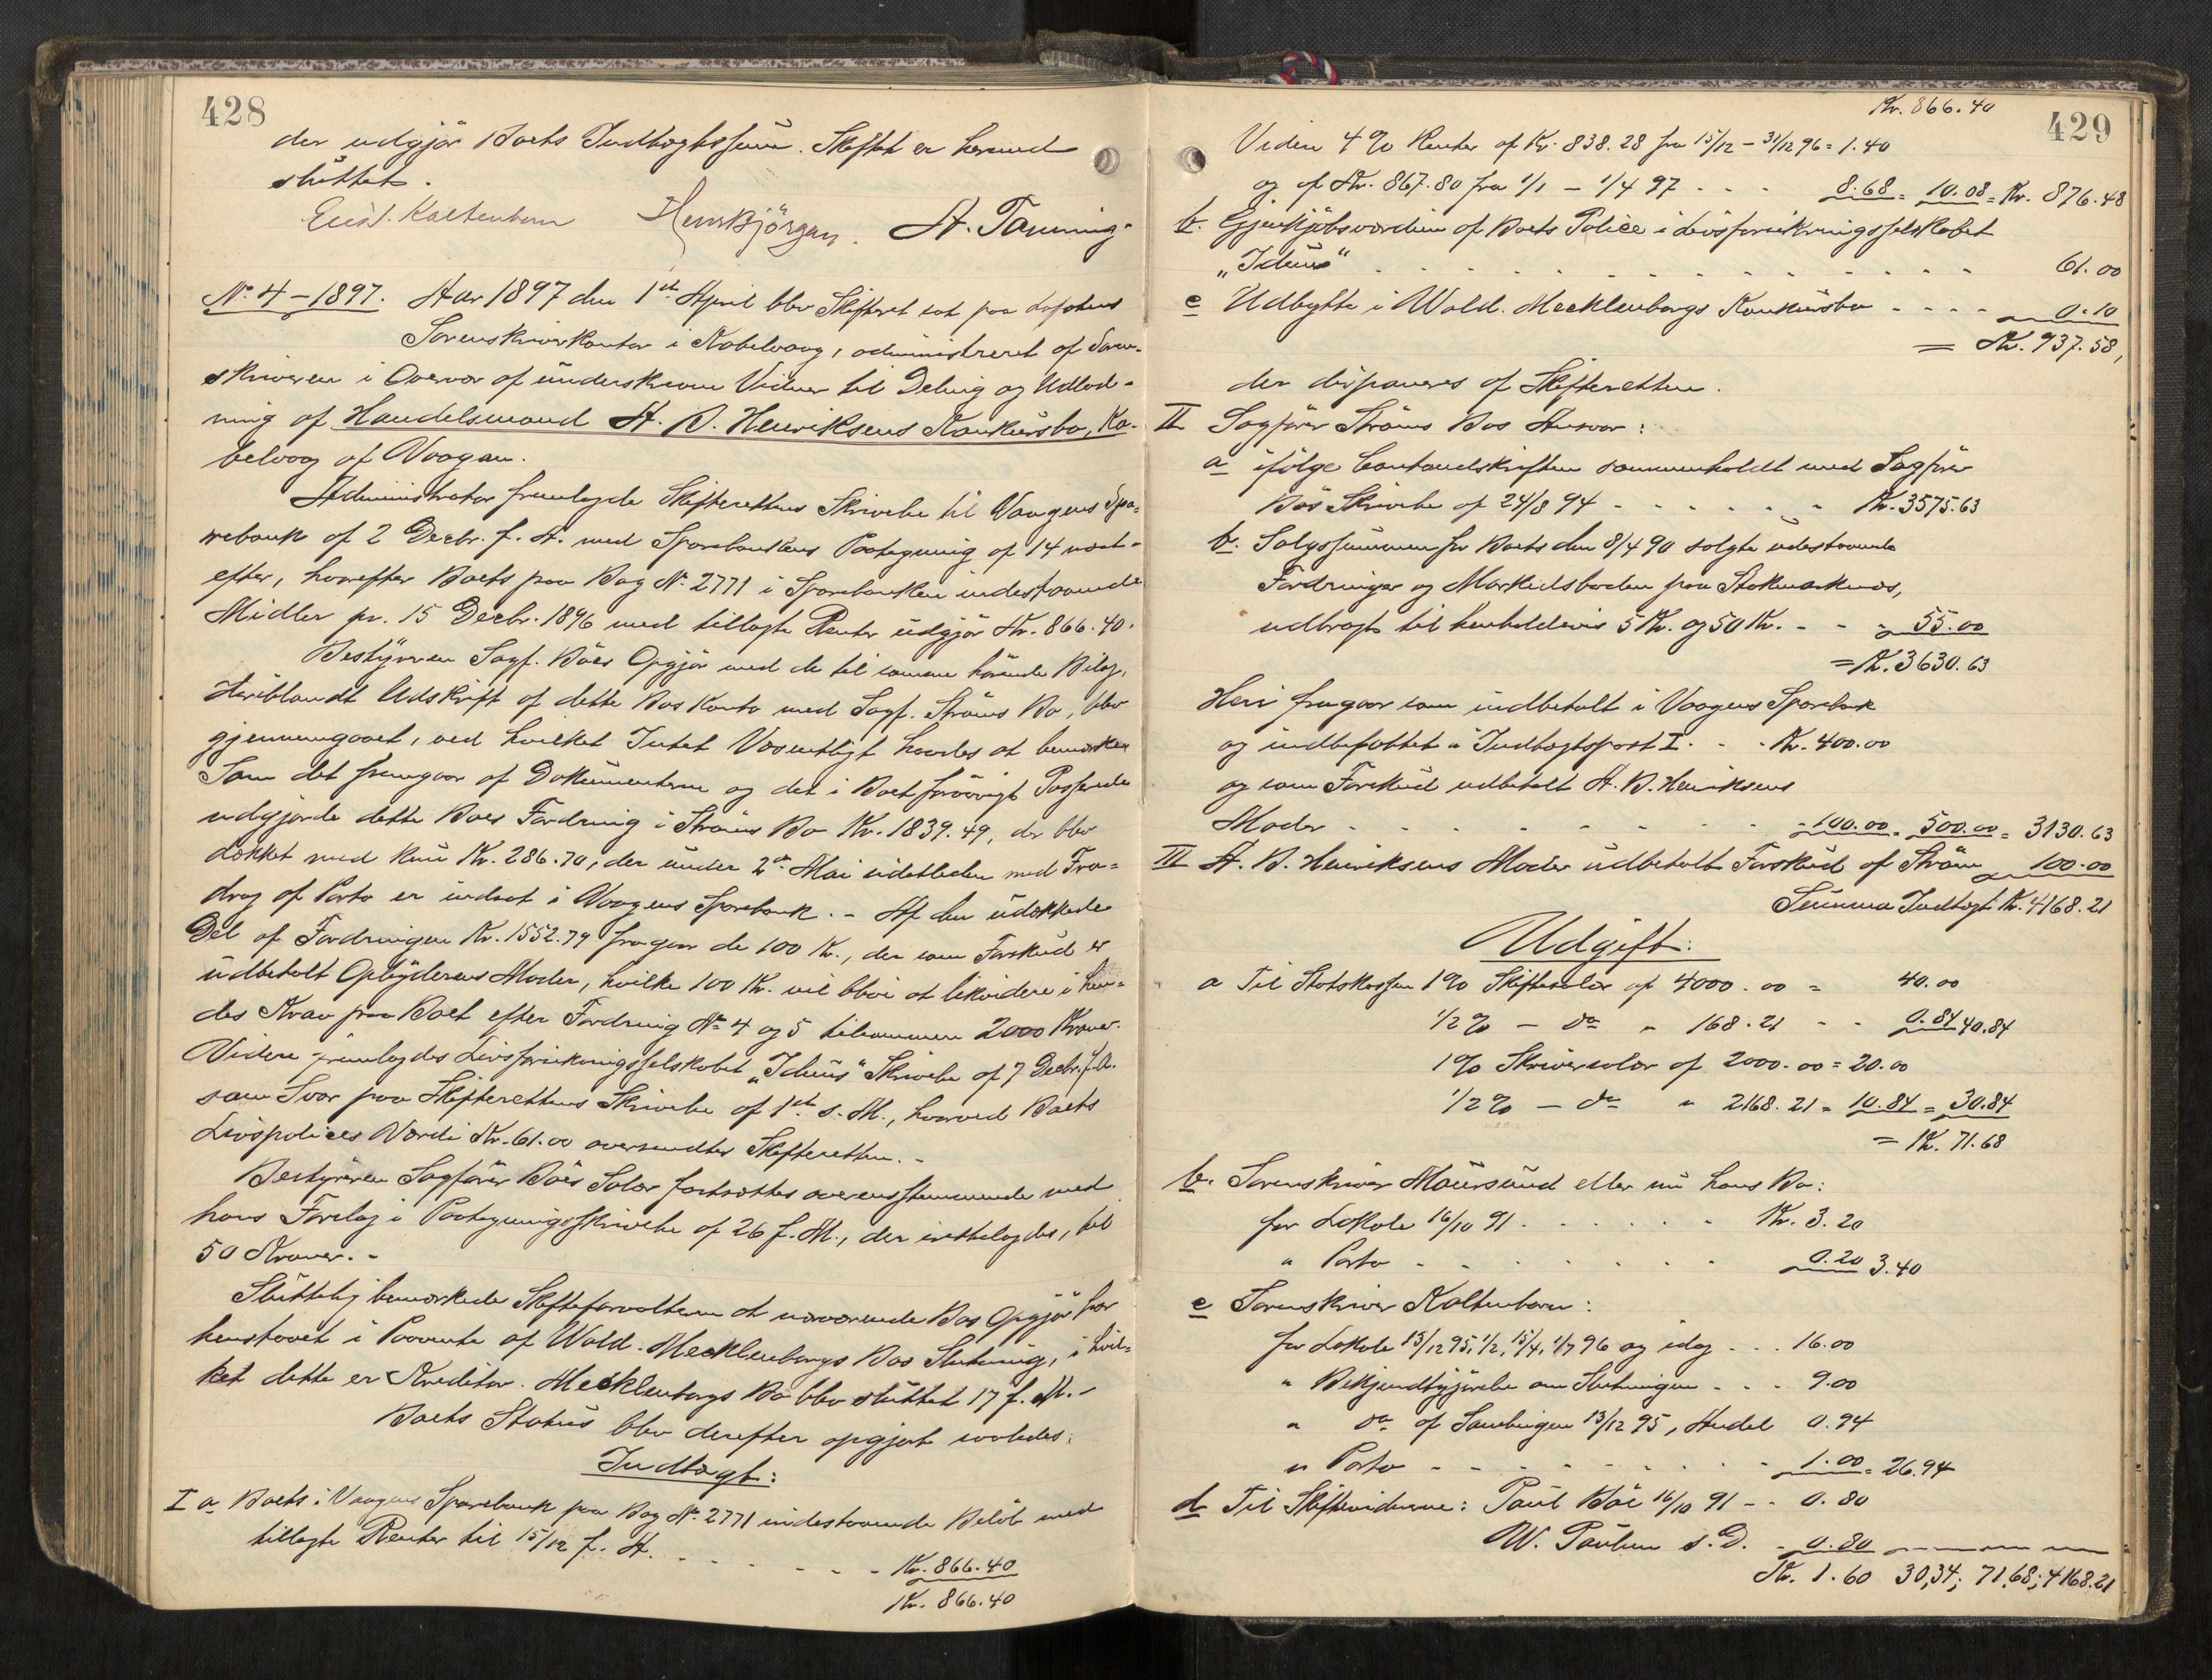 428
der udgjør Boets Indtægtssum. Skiftet er hermed
sluttet.
Eerst. Kaltenborn Henr Bjørgan. A. Tanning
No. 4 – 1897. Aar 1897 den 1ste April blev Skifteret sat paa Lofotens
Sorenskriverkontor i Kabelvaag, administreret af Soren-
skriveren i Overvær af underskrevne Vidner til Deling og Udlod-
ning af Handelsmand A. B. Henriksens Konkursbo, Ka-
belvaag af Vaagan.
Administrator fremlagde Skifterettens Skrivelse til Vaagens Spa-
rebank af 2 Decbr. f. A. med Sparebankens Paategning af 14 næst-
efter, hvorefter Boets paa Bog No. 2771 i Sparebanken indestaaende
Midler pr. 15 Decbr. 1896 med tillagte Renter udgjør Kr. 866.40.
Bestyreren Sagf. Böes Opgjør med de til samme hørende Bilag,
heriblandt Udskrift af dette Bos Konto med Sagf. Ströms Bo, blev
gjennemgaaet, ved hvilket Intet Væsentligt havdes at bemærke.
Som det fremgaar af Dokumenterne og det i Boet forøvrigt Passerede
udgjorde dette Boes Fordring i Ströms Bo Kr. 1839.49, der blev
dækket med kun Kr. 286.70, der under 2den Mai sidstleden med Fra-
drag af Porto er indsat i Vaagens Sparebank. – Af den udækkede
Del af Fordringen Kr. 1552.79 fragaar de 100 Kr., der som Forskud er
udbetalt Opbyderens Moder, hvilke 100 Kr. vil blive at likvidere i hen-
des Krav paa Boet efter Fordring No 4 og 5 tilsammen 2000 Kroner.
Videre fremlagdes Livsforsikringsselskabet „Iduns“ Skrivelse af 7 Decbr. f. A.
som Svar paa Skifterettens Skrivelse af 1ste s. M., hvorved Boets
Livspolices Værdi Kr. 61.00 oversendtes Skifteretten. –
Bestyreren Sagfører Böes Salær fastsattes overensstemmende med
hans Forslag i Paategningsskrivelse af 26 f. M., der irettelagdes, til
50 Kroner. –
Sluttelig bemærkede Skifteforvalteren at nærværende Bos Opgjør har
henstaaet i Paavente af Wald. Mecklenborgs Bos Slutning, i hvil-
ket dette er Kreditor. Mecklenborgs Bo blev sluttet 17 f. M. –
Boets Status blev derefter opgjort saaledes:
Indtægt:
I a Boets i Vaagens Sparebank paa Bog No. 2771 indestaaende Beløb med
tillagte Renter til 15/12 f. A. - - - - - Kr. 866.40
Kr. 866.40
429
Kr. 866.40
Viden 4 % Renter af Kr. 838.28 fra 15/12 – 31/12 96 = 1.40
og af Kr. 867.80 fra 1/1 – 1/4 97 - - - 8.68 = 10.08 = Kr. 876.48
b. Gjenkjøbsværdien af Boets Police i Livsforsikringsselskabet
„Iduns“ - - - - - - - - - - - - - 61.00
c Udbytte i Wald. Mecklenborgs Konkursbo - - - - 0.10
= Kr. 937.58,
der disponeres af Skifteretten.
II Sagfører Ströms Bos Ansvar:
a ifølge Contraudskriften sammenholdt med Sagfører
Böes Skrivelse af 24/8 94 - - - - - - Kr. 3575.63
b. Salgssummen for Boets den 8/4 90 solgte udestaaende
Fordringer og Markedsboden paa Stokmarknæs,
udbragt til henholdsvis 5 Kr. og 50 Kr. - - - 55.00
= Kr. 3630.63
Heri fragaar som indbetalt i Vaagens Sparebank
og indbefattet i Indtægtspost I. - - Kr. 400.00
og som Forskud udbetalt A. B. Henriksens
Moder - - - - - - - - - 100.00 = 500.00 = 3130.63
III A. B. Henriksens Moder udbetalt Forskud af Ström 100.00
Summa Indtægt Kr. 4168.21
Udgift:
a Til Statskassen 1 % Skiftesalær af 4000.00 = 40.00
1/2 % – do " 168.21 - - 0.84 40.84
1 % Skriversalær af 2000.00 = 20.00
1/2 % – do " 2168.21 = 10.84 = 30.84
= Kr. 71.68
b. Sorenskriver Maursund eller nu hans Bo:
for Lokale 16/10 91 - - - - - - Kr. 3.20
" Porto - - - - - - - 0.20 3.40
c Sorenskriver Kaltenborn:
for Lokale 13/12 95, 1/2, 15/4, 1/7 96 og idag - - - 16.00
" Bekjendtgjørelse om Slutningen - - - 9.00
" do af Samlingen 13/12 95, Andel 0.94
" Porto - - - - - - - - 1.00 = 26.94
d Til Skiftevidnerne: Paul Böe 16/10 91 - - 0.80
W. Paulsen s. D. - 0.80
Kr. 1.60 30,34; 71,68; 4168.21